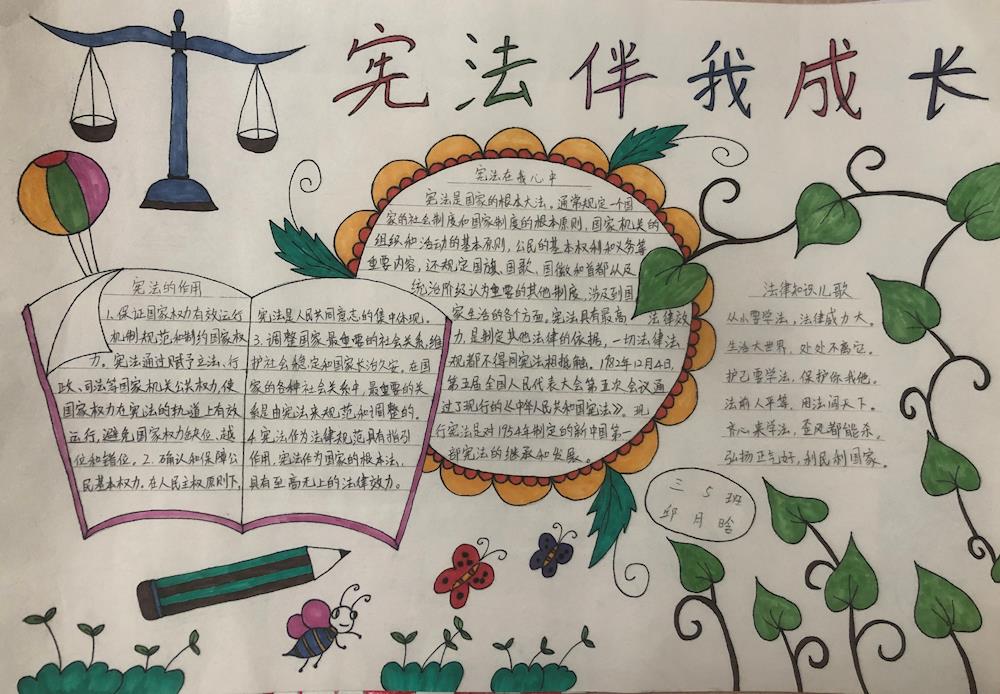 宪法伴我成长
宪法在我心中
宪法是国家的根本大法，通常规定一个国
家的社会制度和国家制度的根本原则，国家机关的
组织和活动的基本原则，公民的基本权利和义务等
重要内容，还规定国旗、国歌、国徽和首都以及
统治阶级认为重要的其他制度，涉及到国
家生活的各个方面。宪法具有最高法律效
力，是制定其他法律的依据，一切法律、法
规都不得同宪法相抵触。1982年12月4日，
第五届全国人民代表大会第五次会议通
过了现行的《中华人民共和国宪法》。现
行宪法是对1954年制定的新中国第一
部宪法的继承和发展。
宪法的作用
1.保证国家权力有效运行
机制规范和制约国家权
力。宪法通过赋予立法、行
政、司法等国家机关公共权力，使
国家权力在宪法的轨道上有效
运行，避免国家权力缺位、越
位和错位。2.确认和保障公
民基本权力。在人民主权原则下，
宪法是人民共同意志的集中体现。
3.调整国家最重要的社会关系，维
护社会稳定和国家长治久安。在国
家的各种社会关系中，最重要的关
系是由宪法来规范和调整的。
4.宪法作为法律规范具有指引
作用，宪法作为国家的根本法，
具有至高无上的法律效力。
法律知识儿歌
从小要学法，法律威力大。
生活大世界，处处不离它。
护己要学法，保护你我他。
法前人平等，用法闯天下。
齐心来学法，歪风都能杀。
弘扬正气好，利民利国家。
三5班
邱月晗